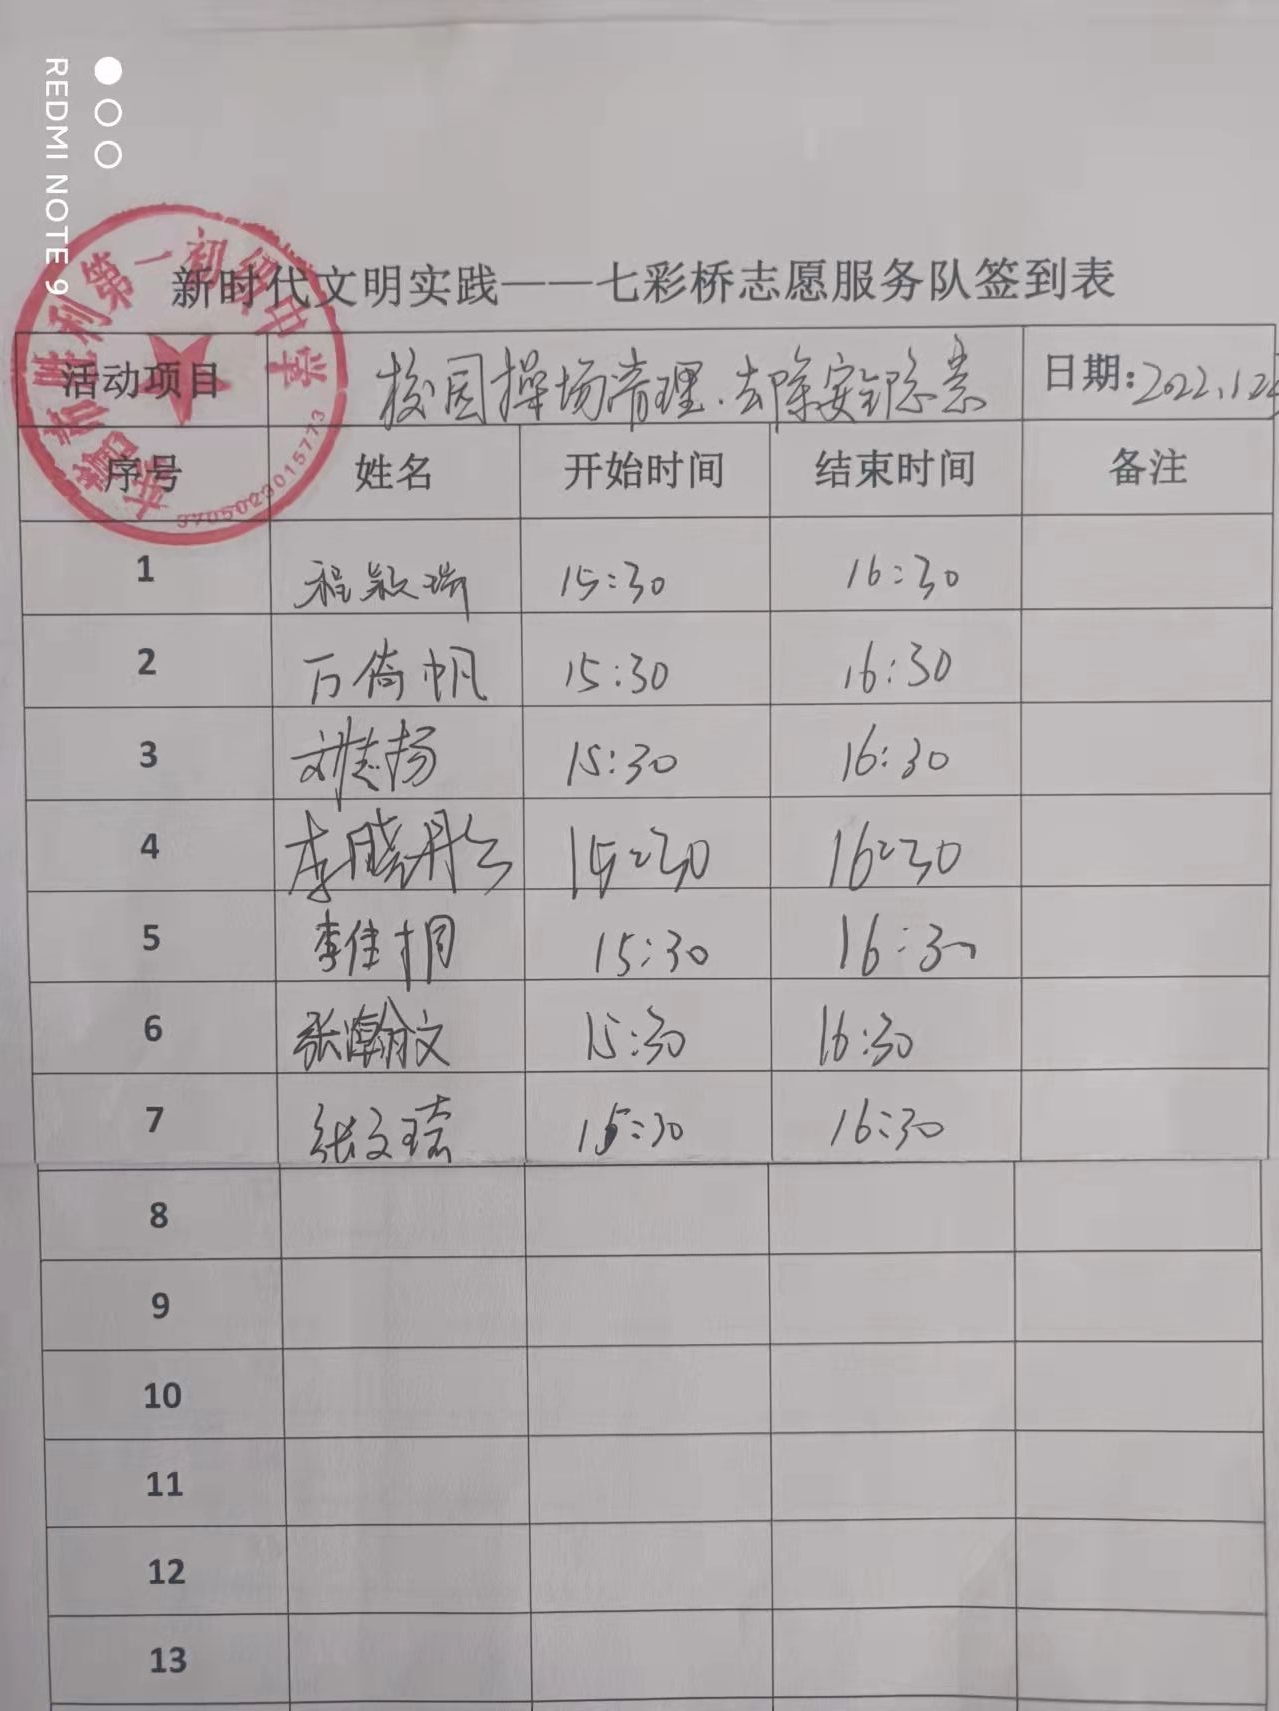 REDMI NOTE 9
新时代文明实践——七彩桥志愿服务队签到表
活动项目 校园操场清理.去除安全隐患 日期:2022.1.24
序号 姓名 开始时间 结束时间 备注
1 程颖瑞 15:30 16:30
2 万倚帆 15:30 16:30
3 刘志扬 15:30 16:30
4 李晓彤 15:30 16:30
5 李佳桐 15:30 16:30
6 张瀚文 15:30 16:30
7 张文 15:30 16:30
8
9
10
11
12
13
胜利第一初级中学
3705023015773